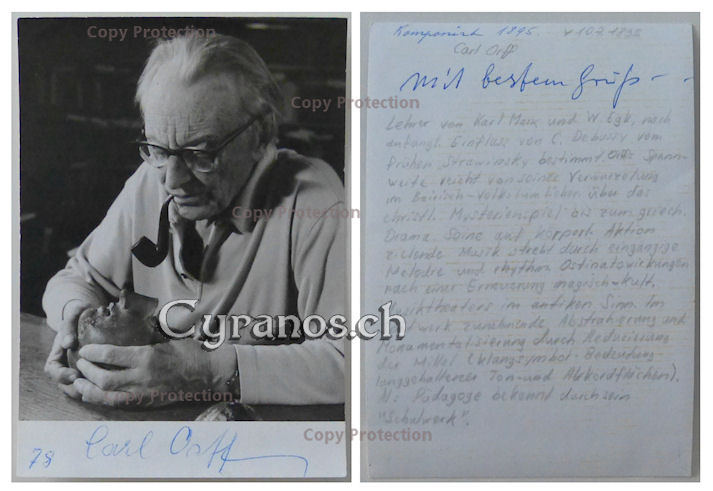 Copy Protection
Cyranos.ch
Copy Protection
78
Carl Orff
Komponist 1895. * 10.7.1895
Carl Orff
Mit bestem Gruß
Copy Protection
Lehrer von Karl Marx und W. Egk, nach
anfängl. Einfluss von C. Debussy vom
frühen Strawinsky bestimmt. Orffs Spann-
weite reicht von seiner Verwurzelung
im Bairisch-Volkstümlichen über das
Copy Protection
christl. Mysterienspiel bis zum griech.
Drama. Seine auf körperl. Aktion
zielende Musik strebt durch eingängige
Melodie und rhythm. Ostinatowirkungen
nach einer Erneuerung magisch-kult.
im antiken Sinn. Im
zunehmende Abstrahierung und
Monumentalisierung durch Reduzierung
der Mittel (Klangsymbol-Bedeutung
langgehaltener Ton- und Akkordflächen).
Als Pädagoge bekannt durch sein
"Schulwerk".
Copy Protection